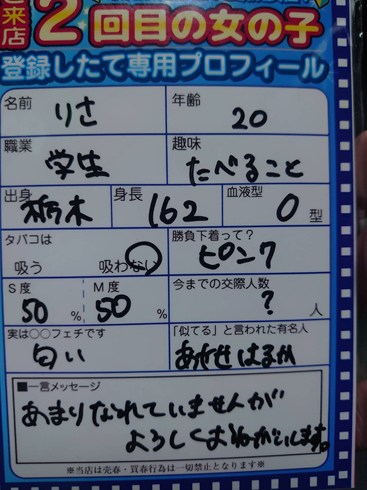 ご来店
2回目の女の子
登録したて専用プロフィール
名前 りさ
年齢 20
職業 学生
趣味 たべること
出身 栃木
身長 162
血液型 O 型
タバコは
吸う 吸わない
勝負下着って? ピンク
S度 50 %
M度 50 %
今までの交際人数 ? 人
実は○○フェチです
匂い
「似てる」と言われた有名人
あやせはるか
■一言メッセージ
あまりなれていませんが
よろしくおねがいします。
※当店は売春・買春行為は一切禁止となります※